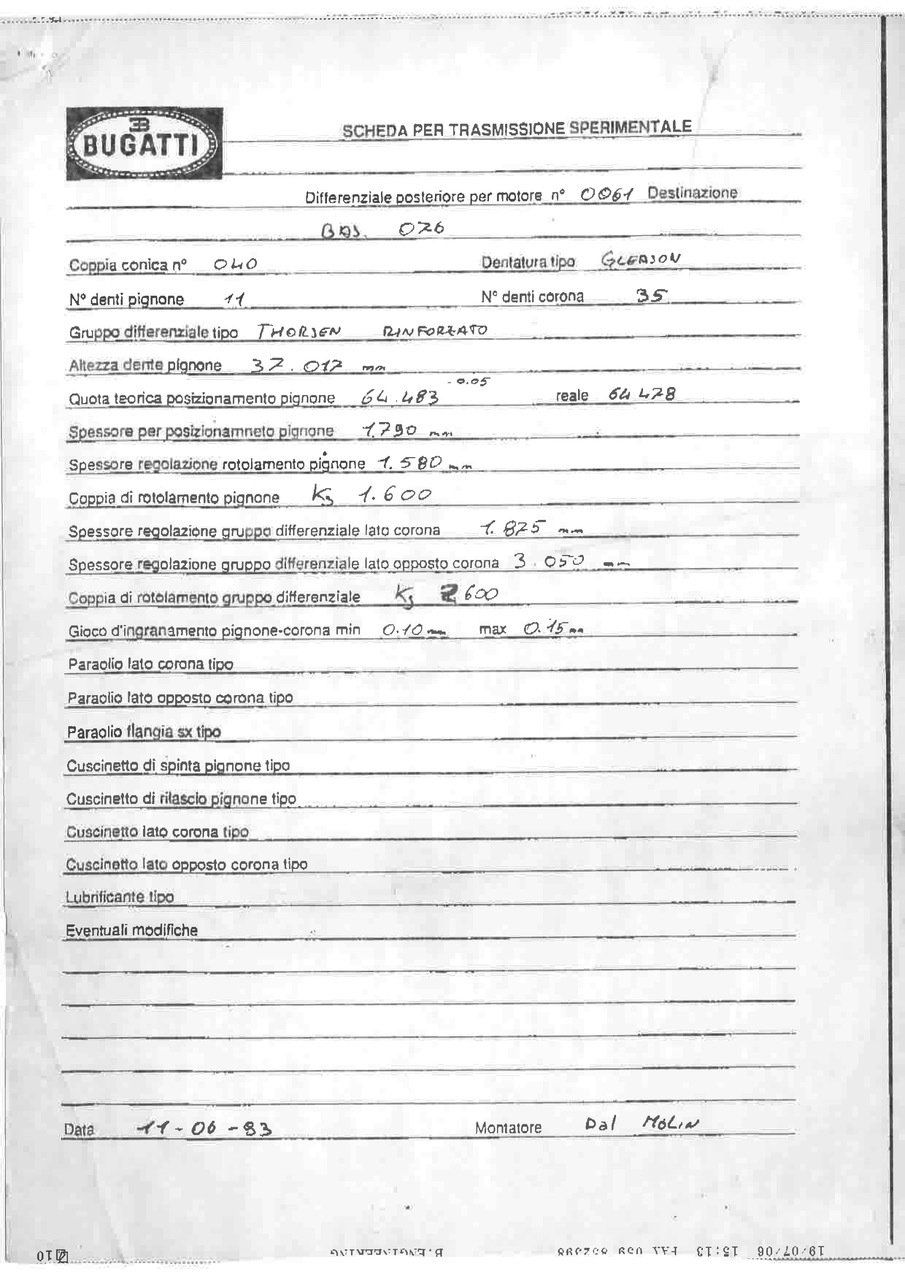 EB
BUGATTI
SCHEDA PER TRASMISSIONE SPERIMENTALE
Differenziale posteriore per motore n° 0061 Destinazione
026
Coppia conica n° 040 Dentatura tipo GLEASON
N° denti pignone 11 N° denti corona 35
Gruppo differenziale tipo THORSEN RINFORZATO
Altezza dente pignone 37.017 mm
Quota teorica posizionamento pignone 64.483 -0.05 reale 64 478
Spessore per posizionamneto pignone 1.790 mm
Spessore regolazione rotolamento pignone 1.580 mm
Coppia di rotolamento pignone Kg 1.600
Spessore regolazione gruppo differenziale lato corona 1.825 mm
Spessore regolazione gruppo differenziale lato opposto corona 3.050 mm
Coppia di rotolamento gruppo differenziale Kg 2,600
Gioco d'ingranamento pignone-corona min 0.10 mm max 0.15 mm
Paraolio lato corona tipo
Paraolio lato opposto corona tipo
Paraolio flangia sx tipo
Cuscinetto di spinta pignone tipo
Cuscinetto di rilascio pignone tipo
Cuscinetto lato corona tipo
Cuscinetto lato opposto corona tipo
Lubrificante tipo
Eventuali modifiche
Data 11-06-93 Montatore Dal MOLIN
19/07/06 15:13 FAX 059 B.ENGINEERING 10